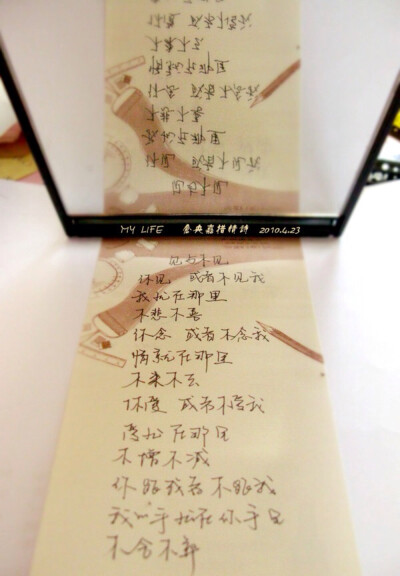 MY LIFE 倉央嘉措情詩 2010.4.23
见与不见
你见 或者不见我
我就在那里
不悲不喜
你念 或者不念我
情就在那里
不来不去
你爱 或者不爱我
爱就在那里
不增不减
你跟或者不跟我
我的手就在你手里
不舍不弃